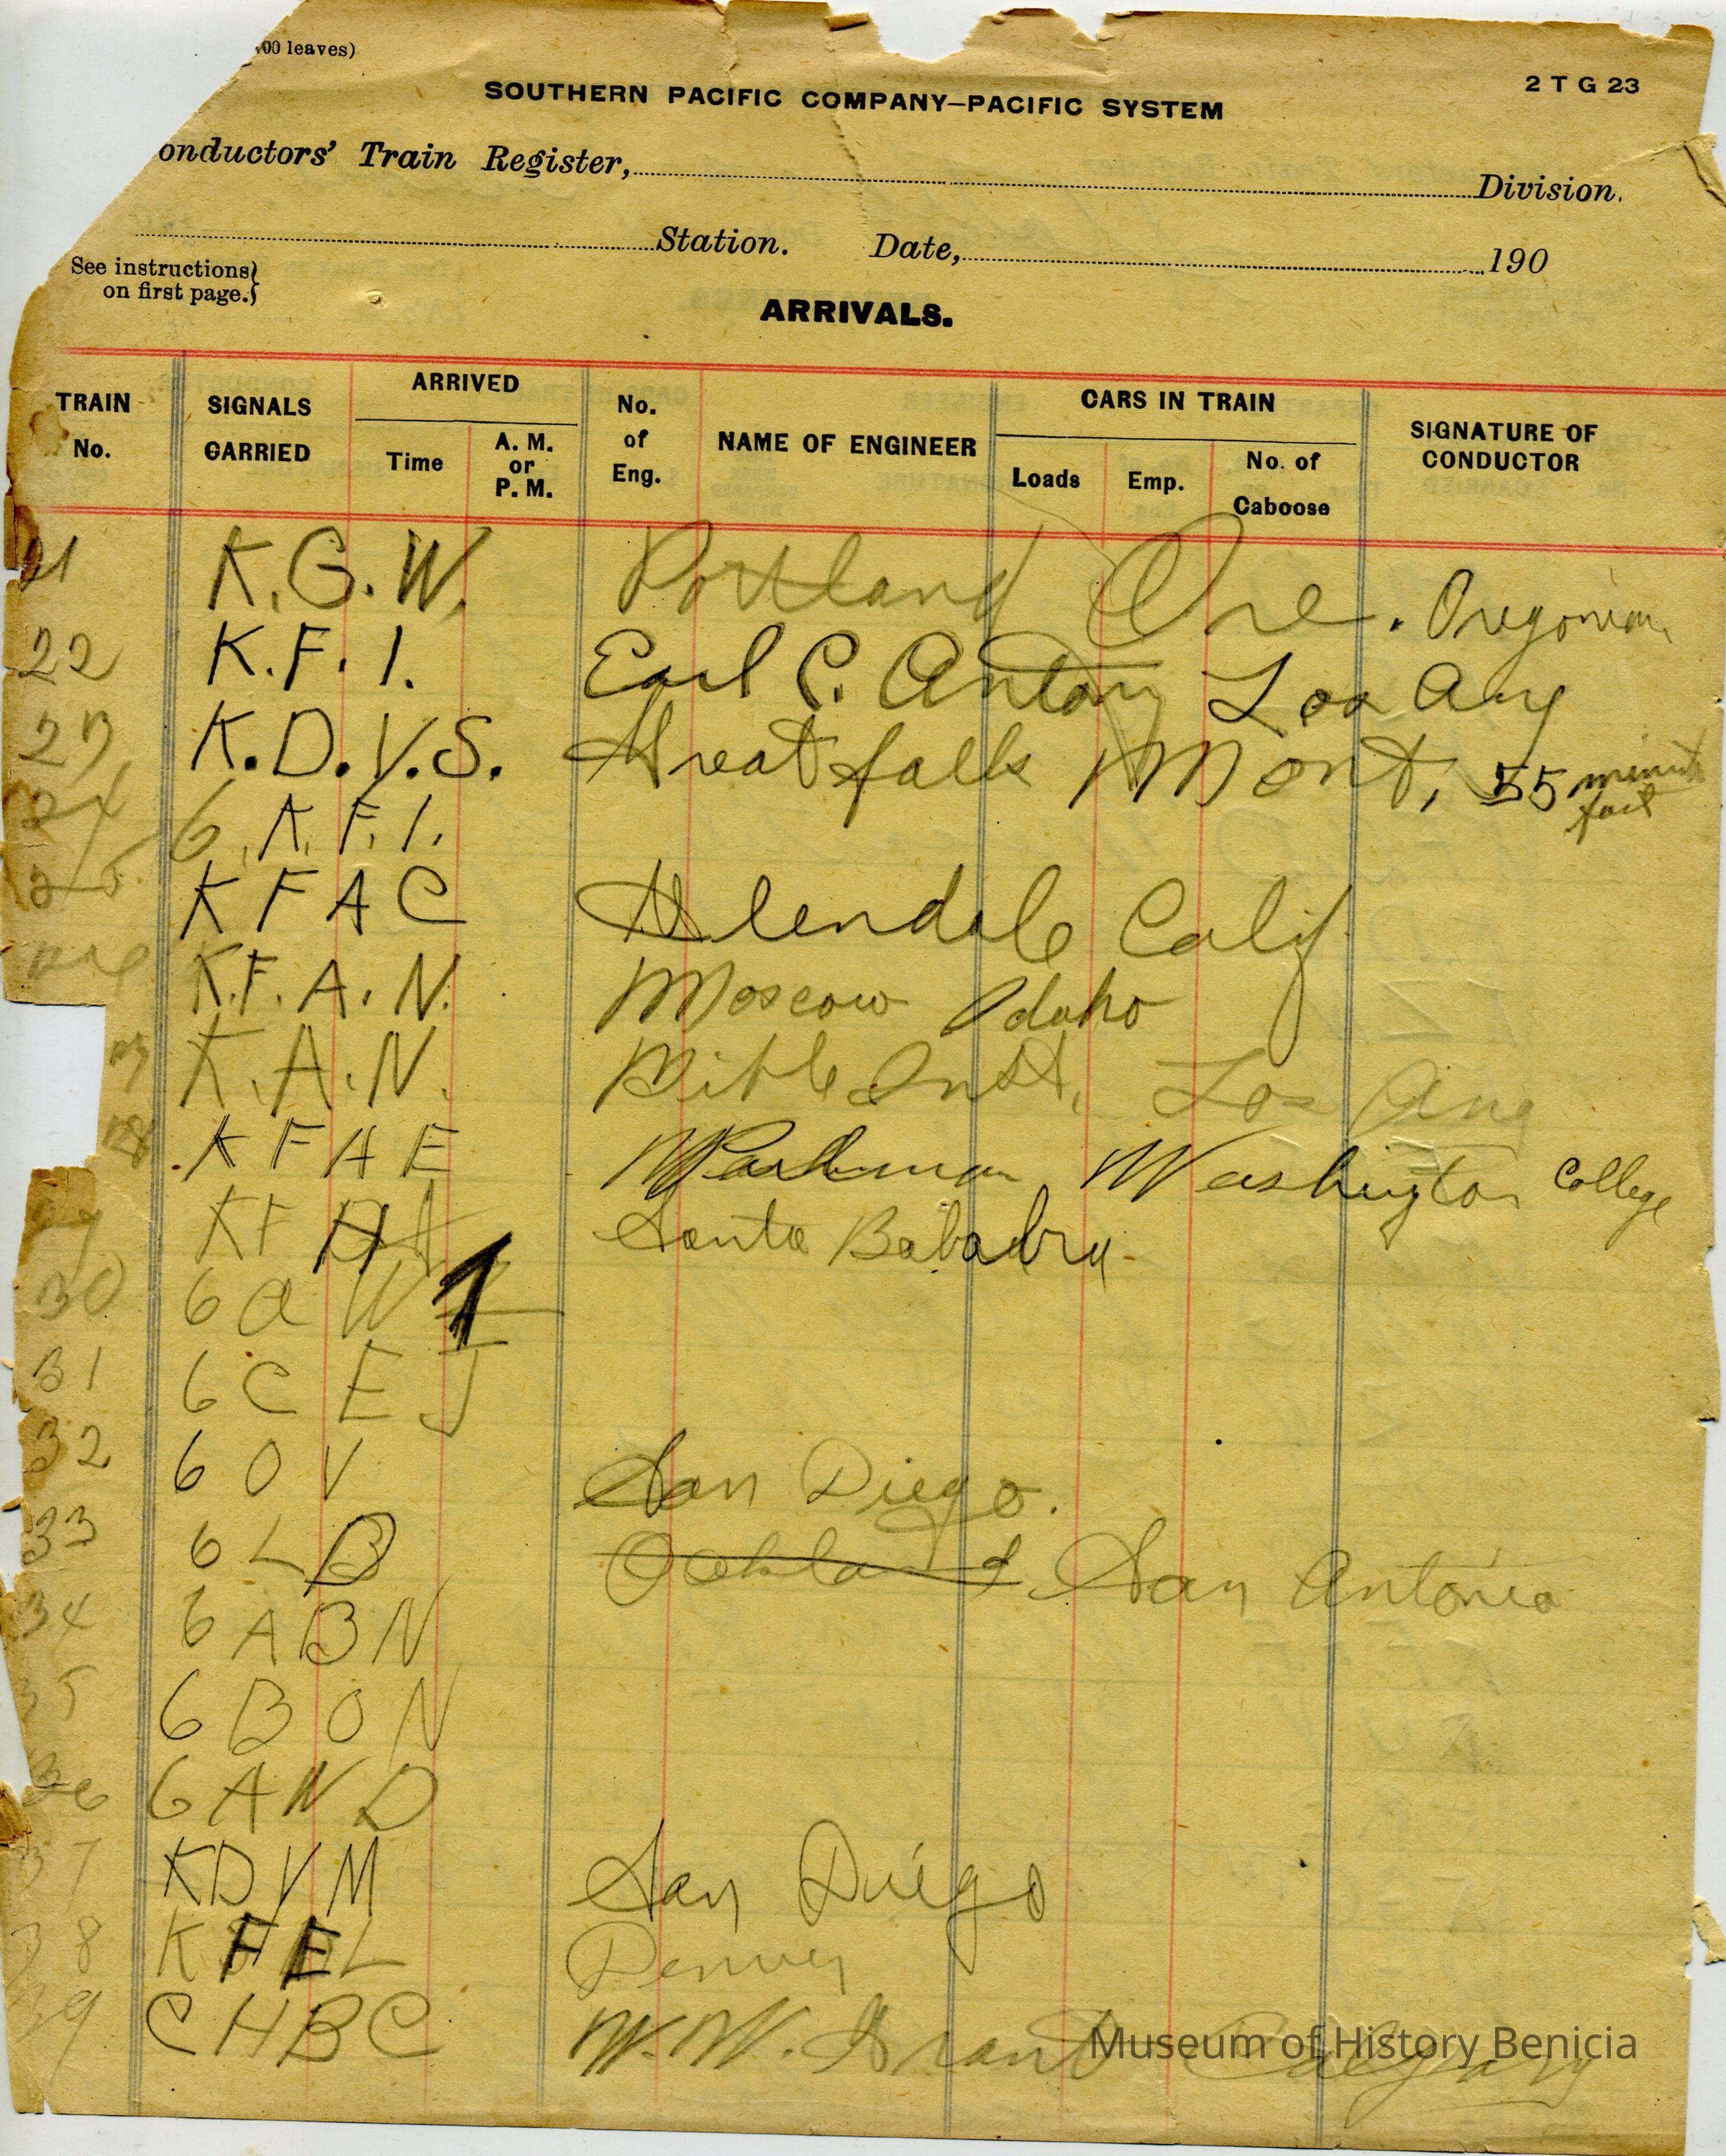 00 leaves)
SOUTHERN PACIFIC COMPANY—PACIFIC SYSTEM
2 T G 23
onductors' Train Register, Division.
Station. Date, 190
See instructions
on first page.
ARRIVALS.
TRAIN No. SIGNALS CARRIED ARRIVED Time A. M. or P. M. No. of Eng. NAME OF ENGINEER CARS IN TRAIN Loads Emp. No. of Caboose SIGNATURE OF CONDUCTOR
21 K.G.W. Portland Ore. Oregonian
22 K.F.I. Earl C. Antony Los Ang
23 K.D.Y.S. Great falls Mont, 55 minute
24 6.K.F.I.
25 K F A C Glendale Calif
K.F.A.N. Moscow Idaho
K.A.N. Bible Inst, Los Ang
28 K F A E Washington College
K F Santa Babadra
30 6 A W
31 6 C E J
32 6 O V San Diego.
33 6 L B Oakland San Antonio
34 6 A B N
35 6 B O N
36 6 A W D
37 K D Y M San Diego
38 K F E L Denver
39 C H B C W.W. Grant Calgary
Museum of History Benicia